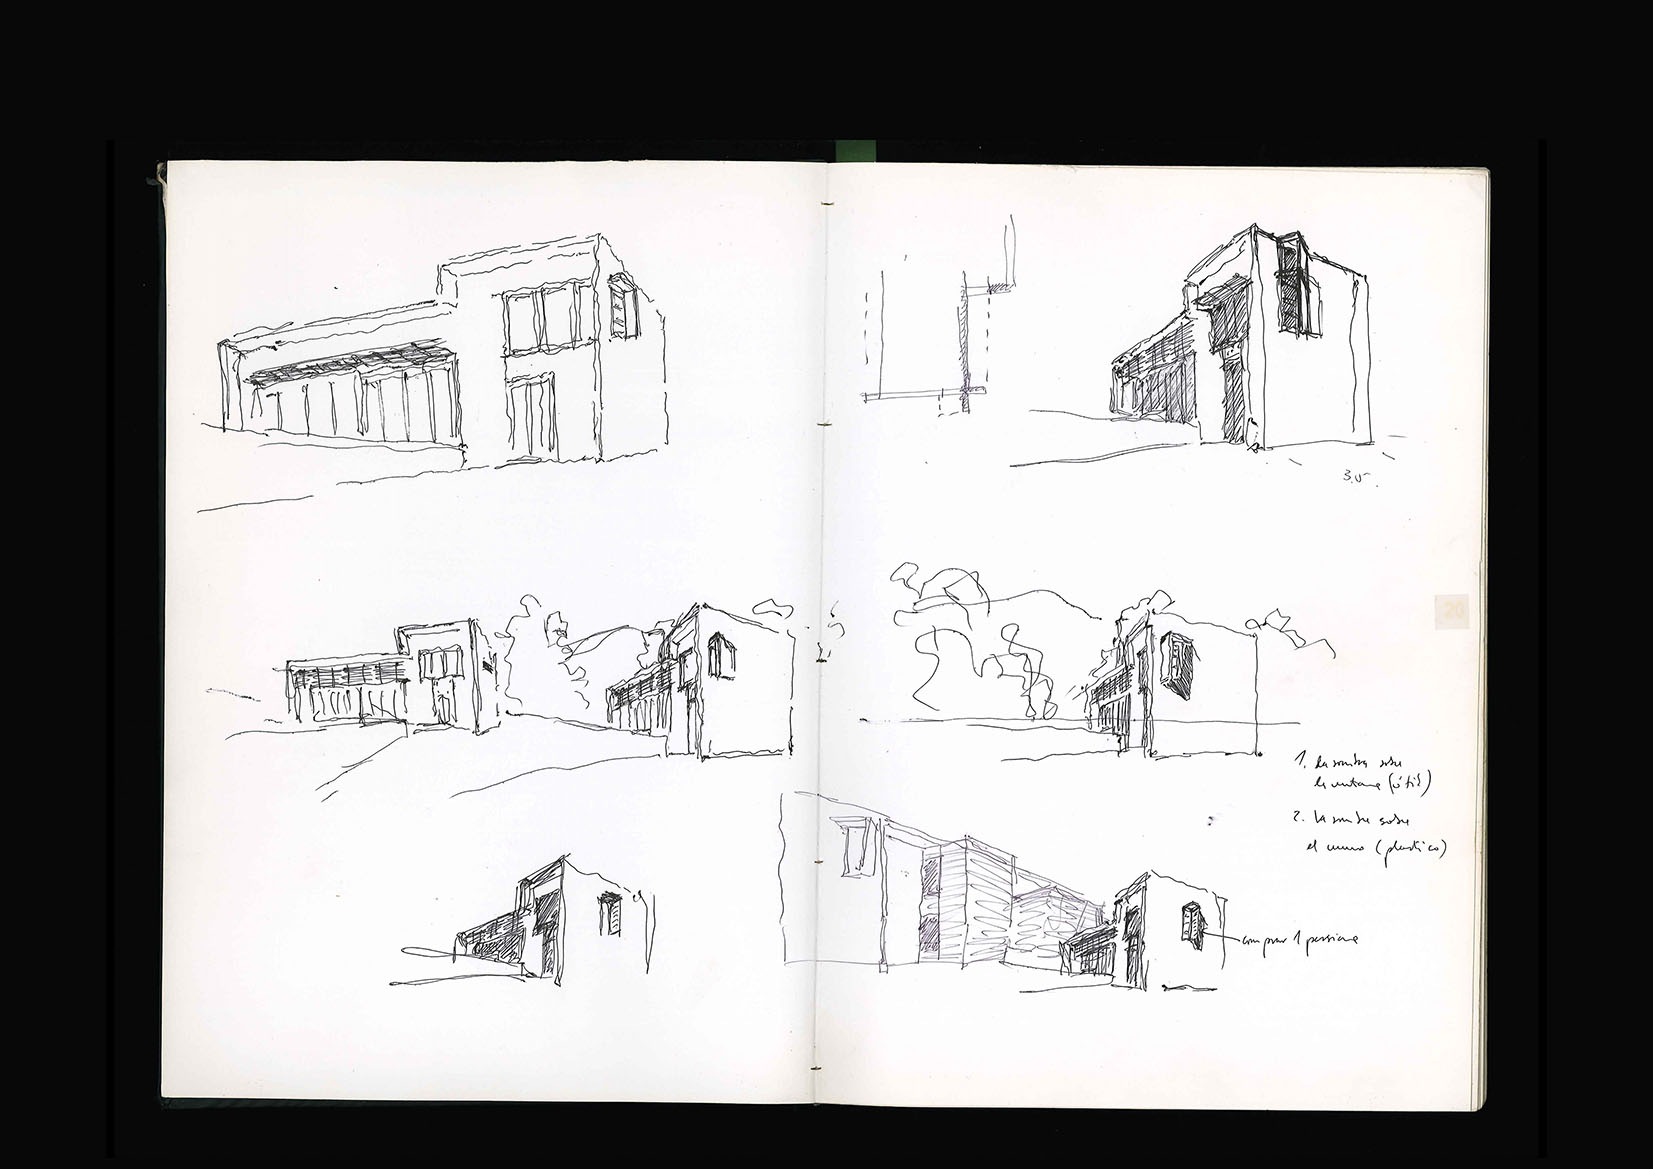 3.5.
20
1. La sombra sobre
la ventana (útil)
2. La sombra sobre
el muro (plastico)
1 persiana